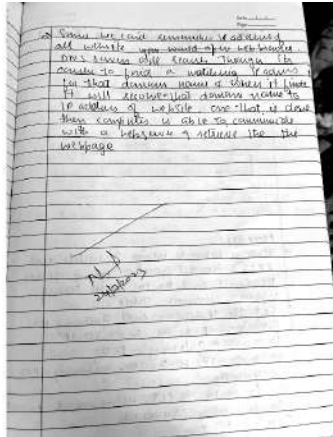 Since we can't remember IP address of
all website you would open web browser.
DNS server will search through its
cache to find a matching IP address
for that domain name & when it finds
it will resolve that domain name to
IP address of website. one that is done
then computer is able to communicate
with a webserver & retrieve the
webpage
24/2/2023